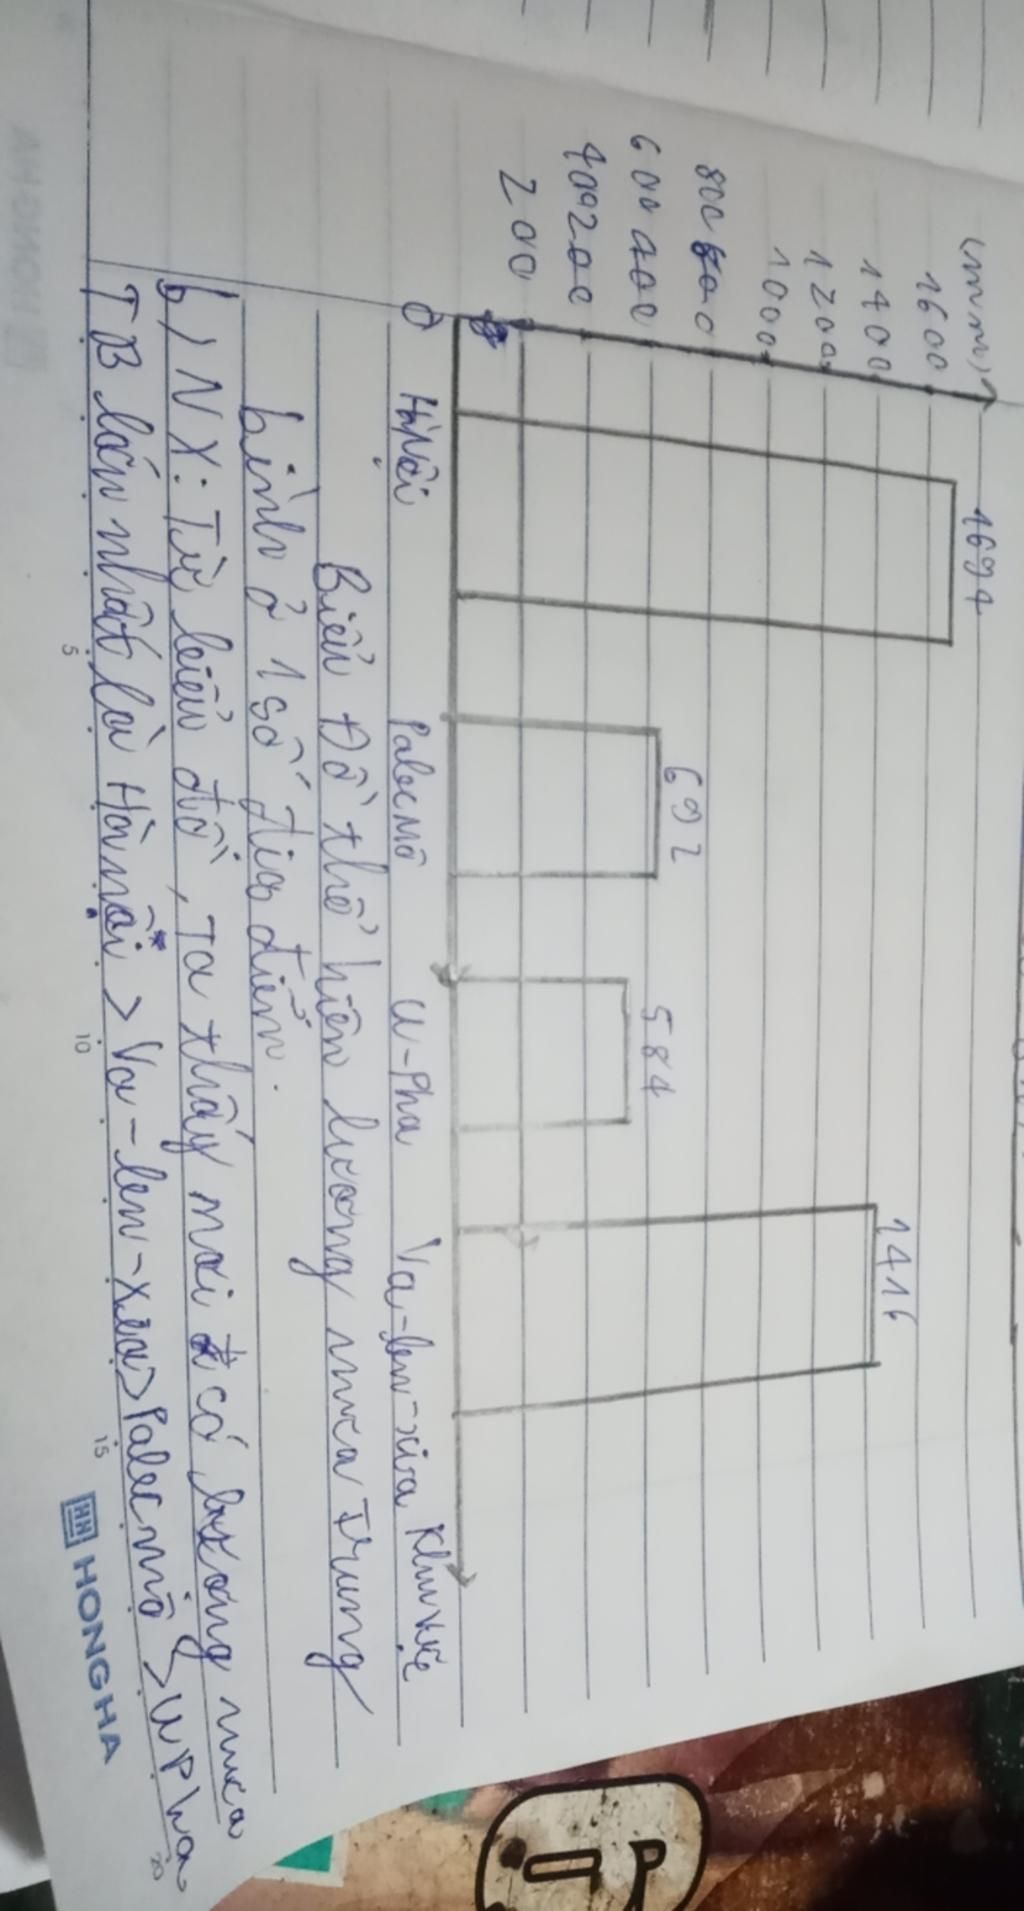 (mm)
1600
1400
1200
1000
800 600
600 400
400 200
200
0
1694
692
584
1416
Hà Nội Palecmô U-Pha Va-len-xi-a Khu vực
Biểu Đồ thể hiện lượng mưa Trung
bình ở 1 số địa điểm.
b) NX: Từ biểu đồ, Ta thấy nơi có lượng mưa
TB lớn nhất là Hà Nội > Va-len-xia > Palecmô > UPha
5 10 15 20
HH HONG HA